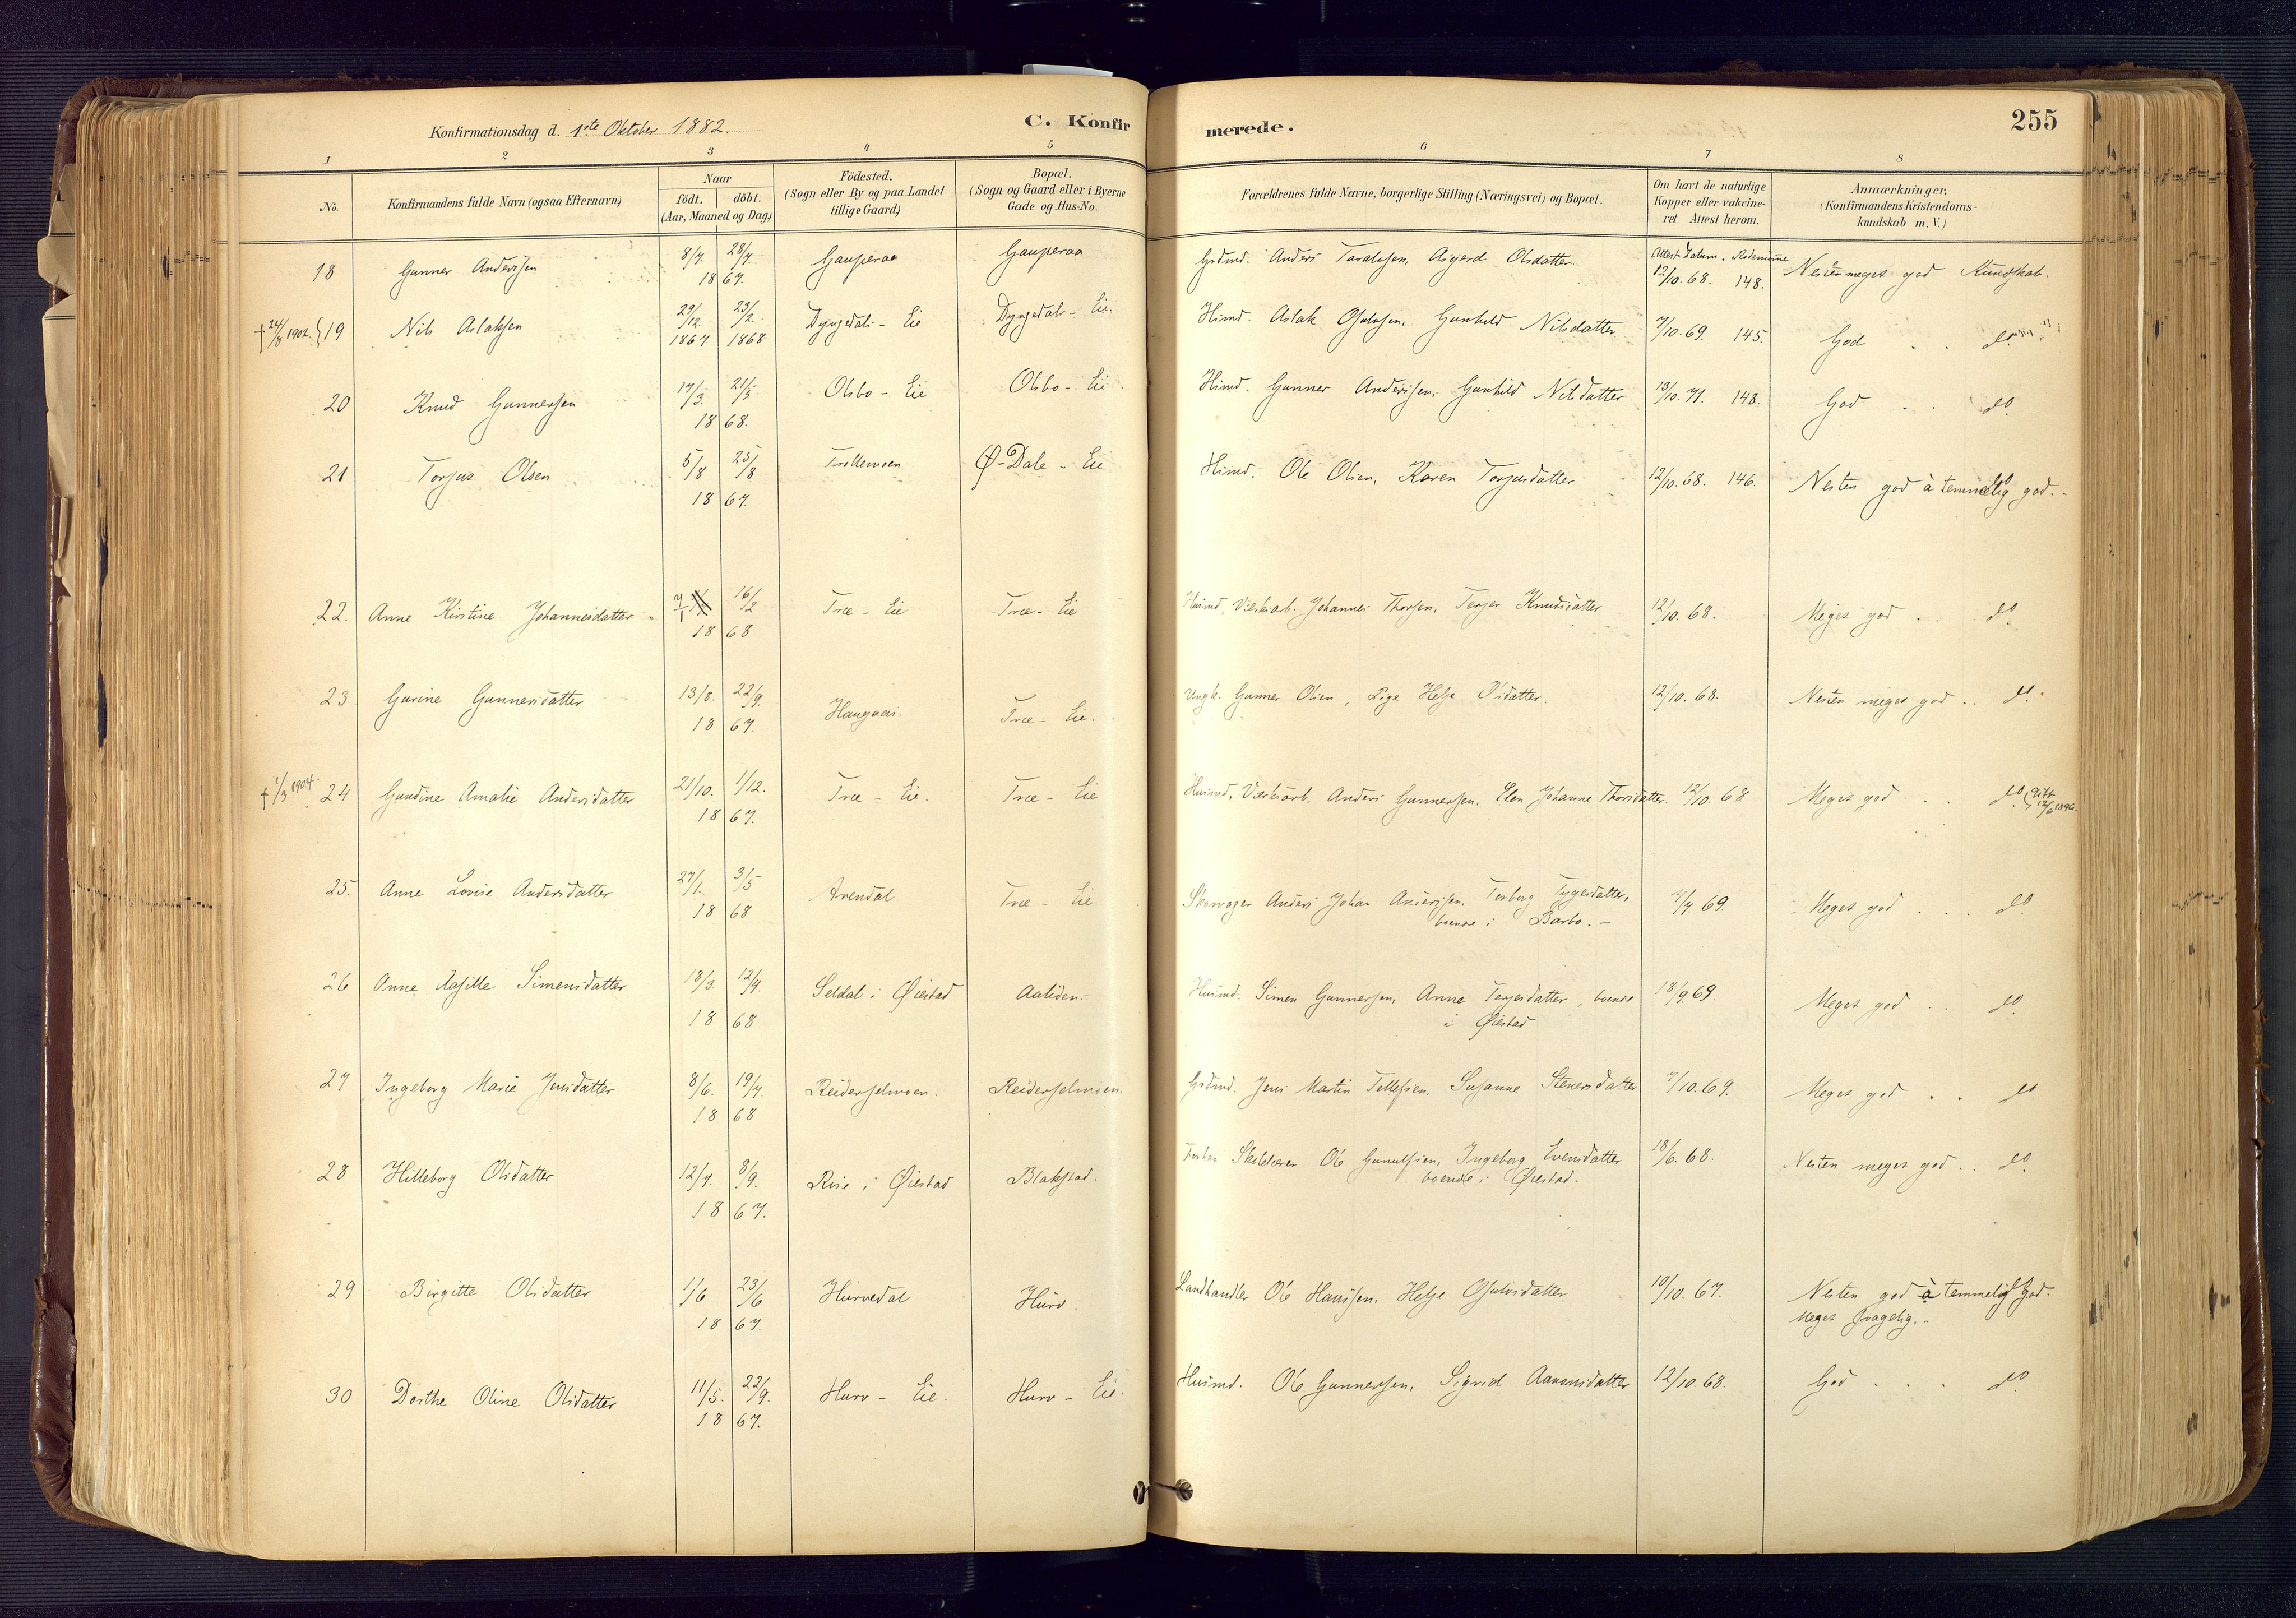 Konfirmationsdag d. 1ste Oktober 1882.
C. Konfirmerede.
255
1 2 3 4 5 6 7 8
No.
Konfirmandens fulde Navn (ogsaa Efternavn)
Naar
födt. döbt.
(Aar, Maaned og Dag)
Födested.
(Sogn eller By og paa Landet
tillige Gaard)
Bopæl.
(Sogn og Gaard eller i Byerne
Gade og Hus-No.
Forældrenes fulde Navne, borgerlige Stilling (Næringsvei) og Bopæl.
Om havt de naturlige
Kopper eller vakcine-
ret Attest herom.
Anmærkninger,
(Konfirmandens Kristendoms-
kundskab m. V.)
Attest Datum.
18 Gunner Anderssen 8/7. 28/7. 1867. Gauperaa Gauperaa Grdmd. Anders Taraldsen, Asgerd Olsdatter 12/10.68. 148. Nesten meget god Kundskab.
† 24/8 1902. 19 Nils Aslaksen 29/12 1867. 23/2 1868 Dyngedals-Eie Dyngedals-Eie. Husmd. Aslak Gunhild Nilsdatter 7/10.69. 145. God do
20 Knud Gunnersen 17/3. 21/5 1868. Olsbo-Eie Olsbo-Eie Husmd. Gunner Anderssen, Gunhild Nilsdatter 13/10.71. 148. God do
21 Torjus Olsen 5/8 25/8 1867. Trollemoen Ø-Dale-Eie Husmd. Ole Olsen, Karen Torjusdatter 12/10.68. 146. Nesten god à temmelig god.
22. Anne Kirstine Johannesdatter 7/1 16/2 1868 Træ-Eie Træ-Eie Husmd, Værksarb. Johannes Thorsen, Knudsdatter 12/10.68. Meget god do
23 Gurine Gunnersdatter 13/8. 22/9. 1867. Haugaas Træ-Eie. Ungk. Gunner Olsen, Pige Helje Olsdatter. 12/10.68. Nesten meget god do
† 1/3 1904. 24 Gundine Amalie Andersdatter 21/10. 1/12. 1867. Træ-Eie. Træ-Eie Husmd, Værksarb. Anders Gunnersen, Elen Johanne Thorsdatter. 12/10.68 Meget god do Gift 12/6 1896.
25. Anne Lovise Andersdatter 27/1. 3/5 1868 Arendal Træ-Eie Anders Johan Anderssen, Torborg Tygesdatter,
boende i Barbo. 7/7.69. Meget god do
26 Anne Simensdatter 18/3 12/4. 1868 Seldal i Øiestad Aaliden. Husmd. Simen Gunnersen, Anne Terjesdatter, boende
i Øiestad 18/9.69. Meget god do
27 Ingeborg Marie Jensdatter 8/6. 19/7. 1868 Reiderselmoen. Reiderselmoen. Grdmd. Jens Martin Tellefsen, Susanne Stenersdatter 7/10.69. Meget god do
28 Hilleborg Olsdatter 12/7. 8/9. 1867. Rise i Øiestad Blakstad. Skolelærer Ole Gunulfsen, Ingeborg Evensdatter
boende i Øiestad. 18/6.68. Nesten meget god do
29 Birgitte Olsdatter 1/6 23/6 1867. Hurvedal Hurv. Landhandler Ole Hanssen, Helje Osulvsdatter 19/10.67. Nesten god à temmelig God.
Meget
30 Dorthe Oline Olsdatter 11/5. 22/9. 1867. Hurv-Eie. Hurv-Eie. Husmd. Ole Gunnerssen, Sigrid Aanonsdatter 12/10.68. God do